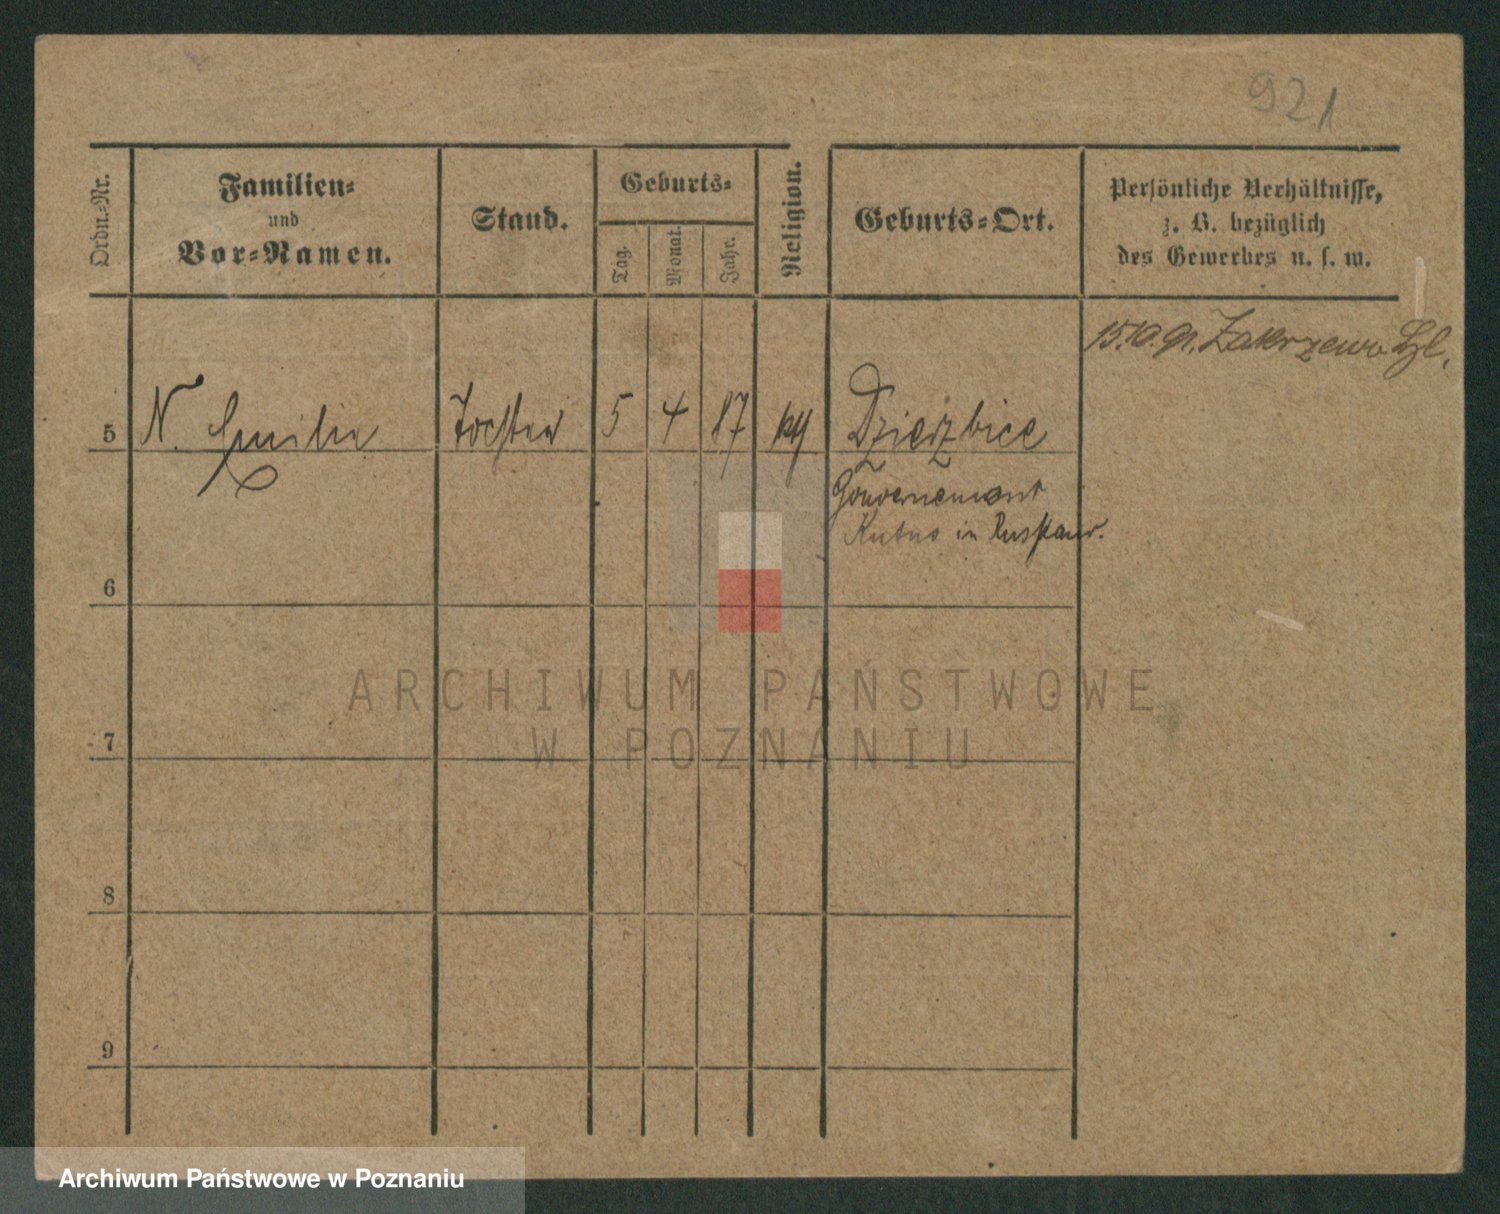 921
Ordn.-Nr.
Familien-
und
Vor-Namen.
Stand.
Geburts-
Tag.
Monat.
Jahr.
Religion.
Geburts-Ort.
Persönliche Verhältnisse,
z. B. bezüglich
des Gewerbes u. s. w.
15.10.91. Zakrzewo
5 N. Emilie Tochter 5 4 87 Dzierzbice
Gouvernement
Kutno in Russland.
6
7
8
9
ARCHIWUM PAŃSTWOWE
W POZNANIU
Archiwum Państwowe w Poznaniu